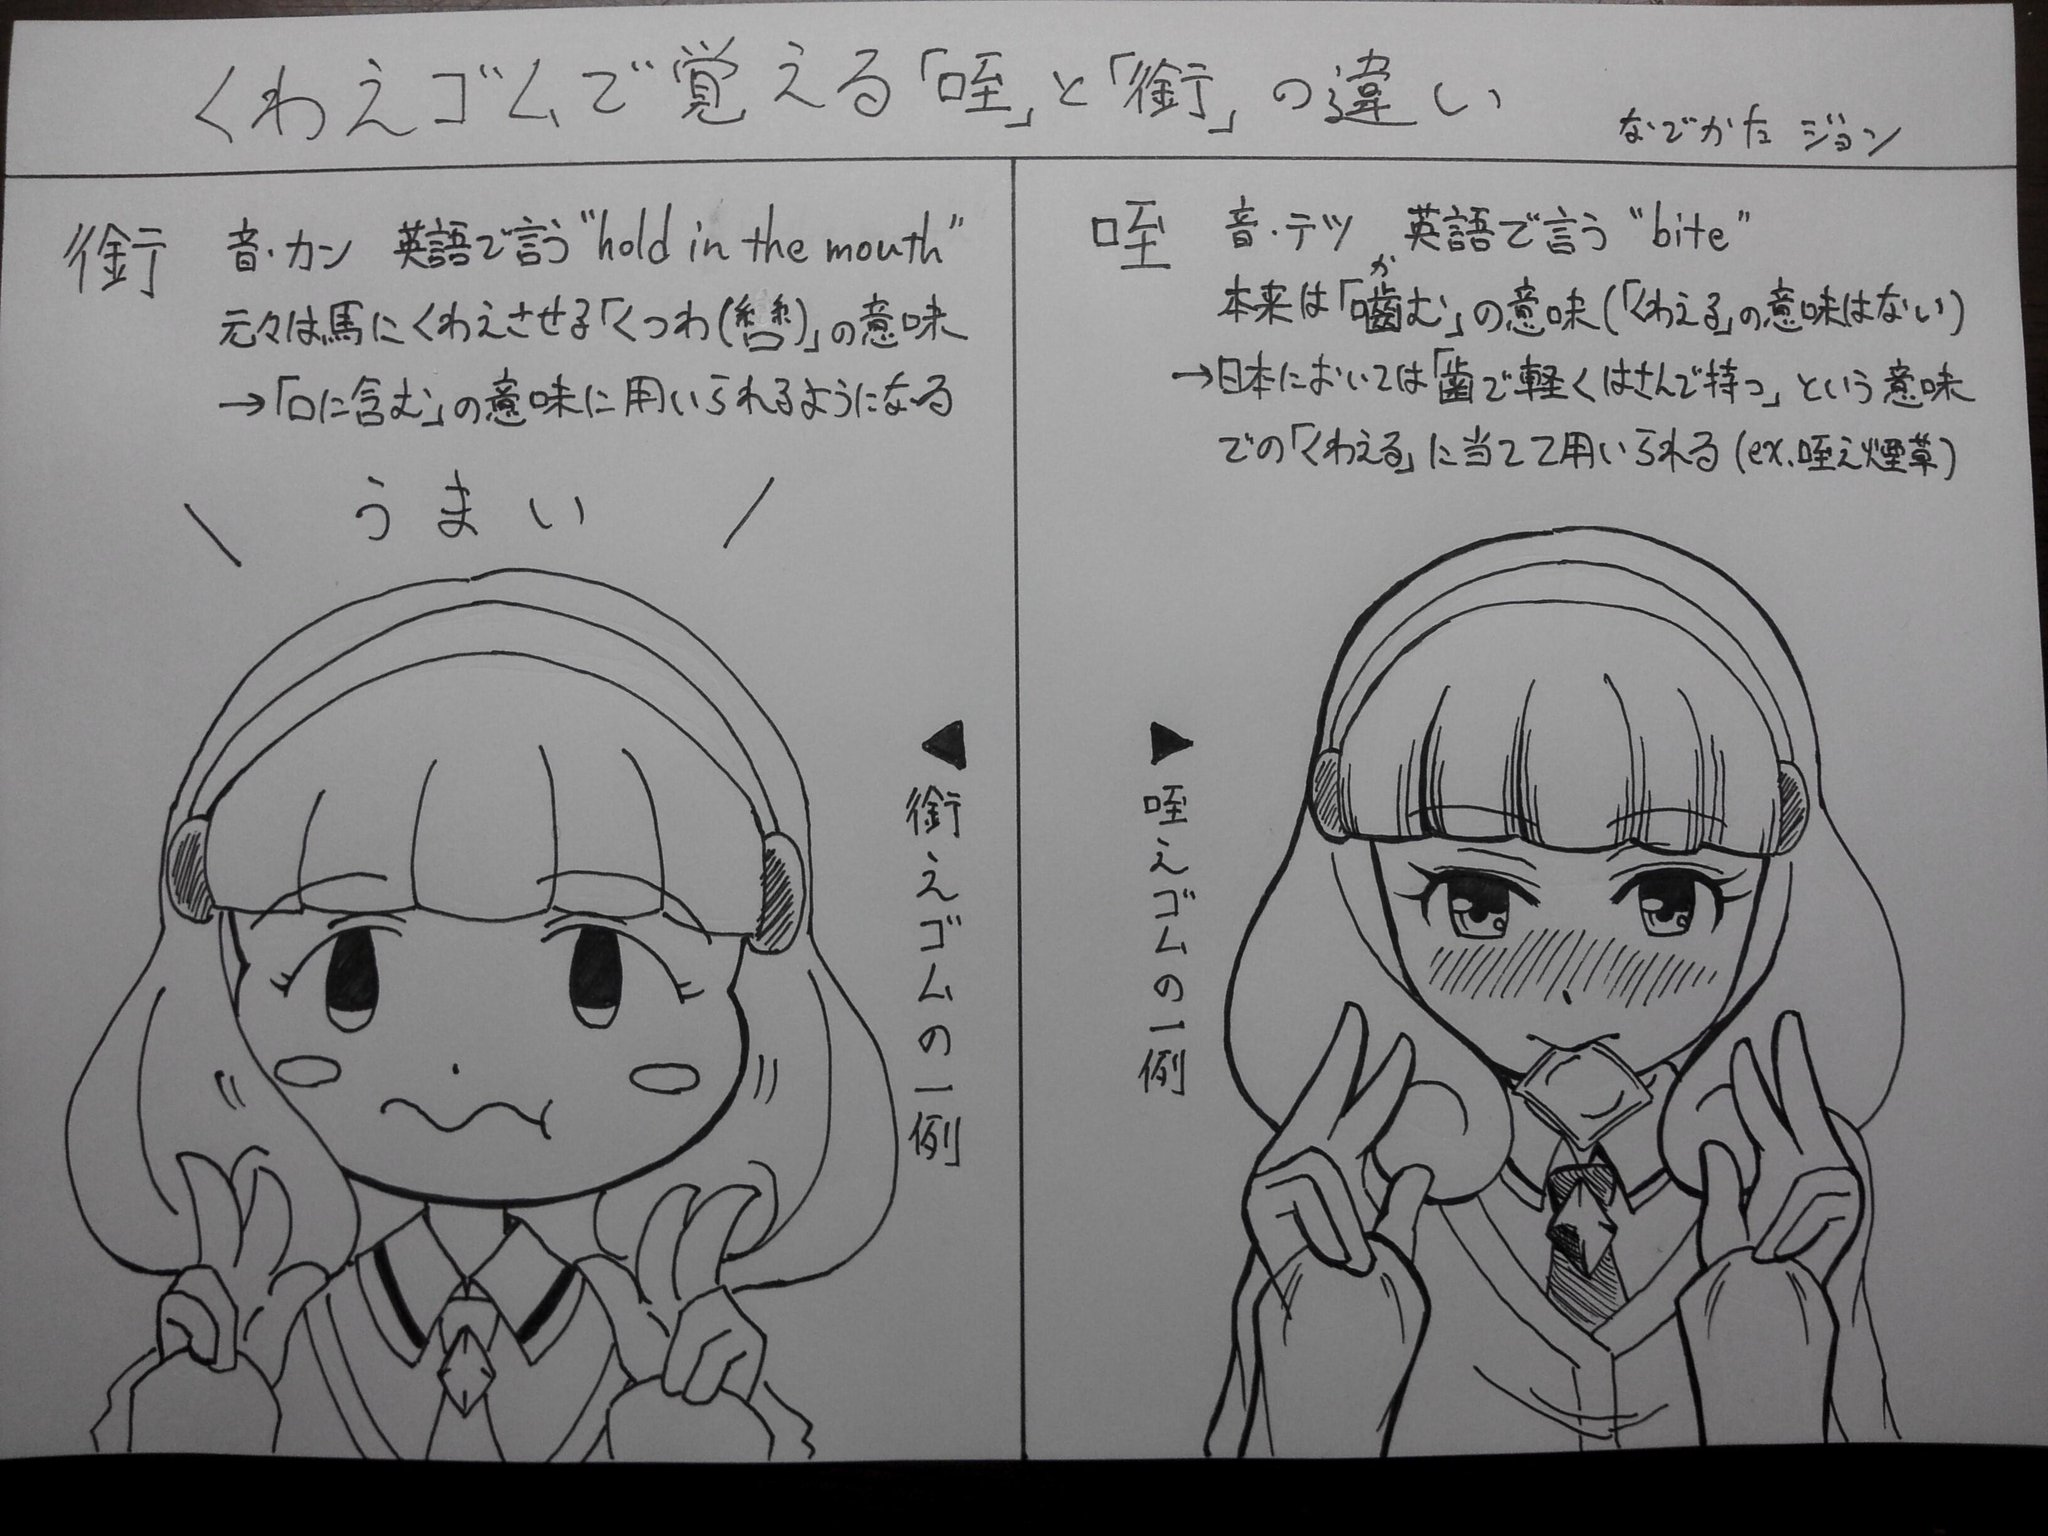 くわえゴムで覚える「咥」と「銜」の違い
なでかた ジョン
銜 音・カン 英語で言う "hold in the mouth"
元々は馬にくわえさせる「くつわ(轡)」の意味
→「口に含む」の意味に用いられるようになる
\ うまい /
◀銜えゴムの一例
咥 音・テツ 英語で言う "bite"
か
本来は「噛む」の意味(「くわえる」の意味はない)
→日本においては「歯で軽くはさんで持つ」という意味
での「くわえる」に当てて用いられる (ex.咥え煙草)
▶咥えゴムの一例